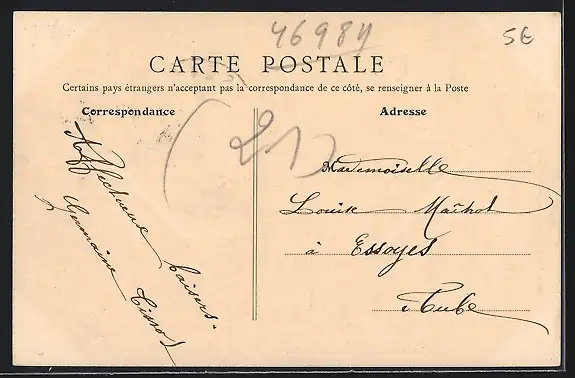 46984
5€
CARTE POSTALE
Certains pays étrangers n'acceptant pas la correspondance de ce côté, se renseigner à la Poste
Correspondance
Adresse
(21)
Affectueux baisers.
Germaine Tissot
Mademoiselle
Louise Maîtrot
à Essoyes
Aube